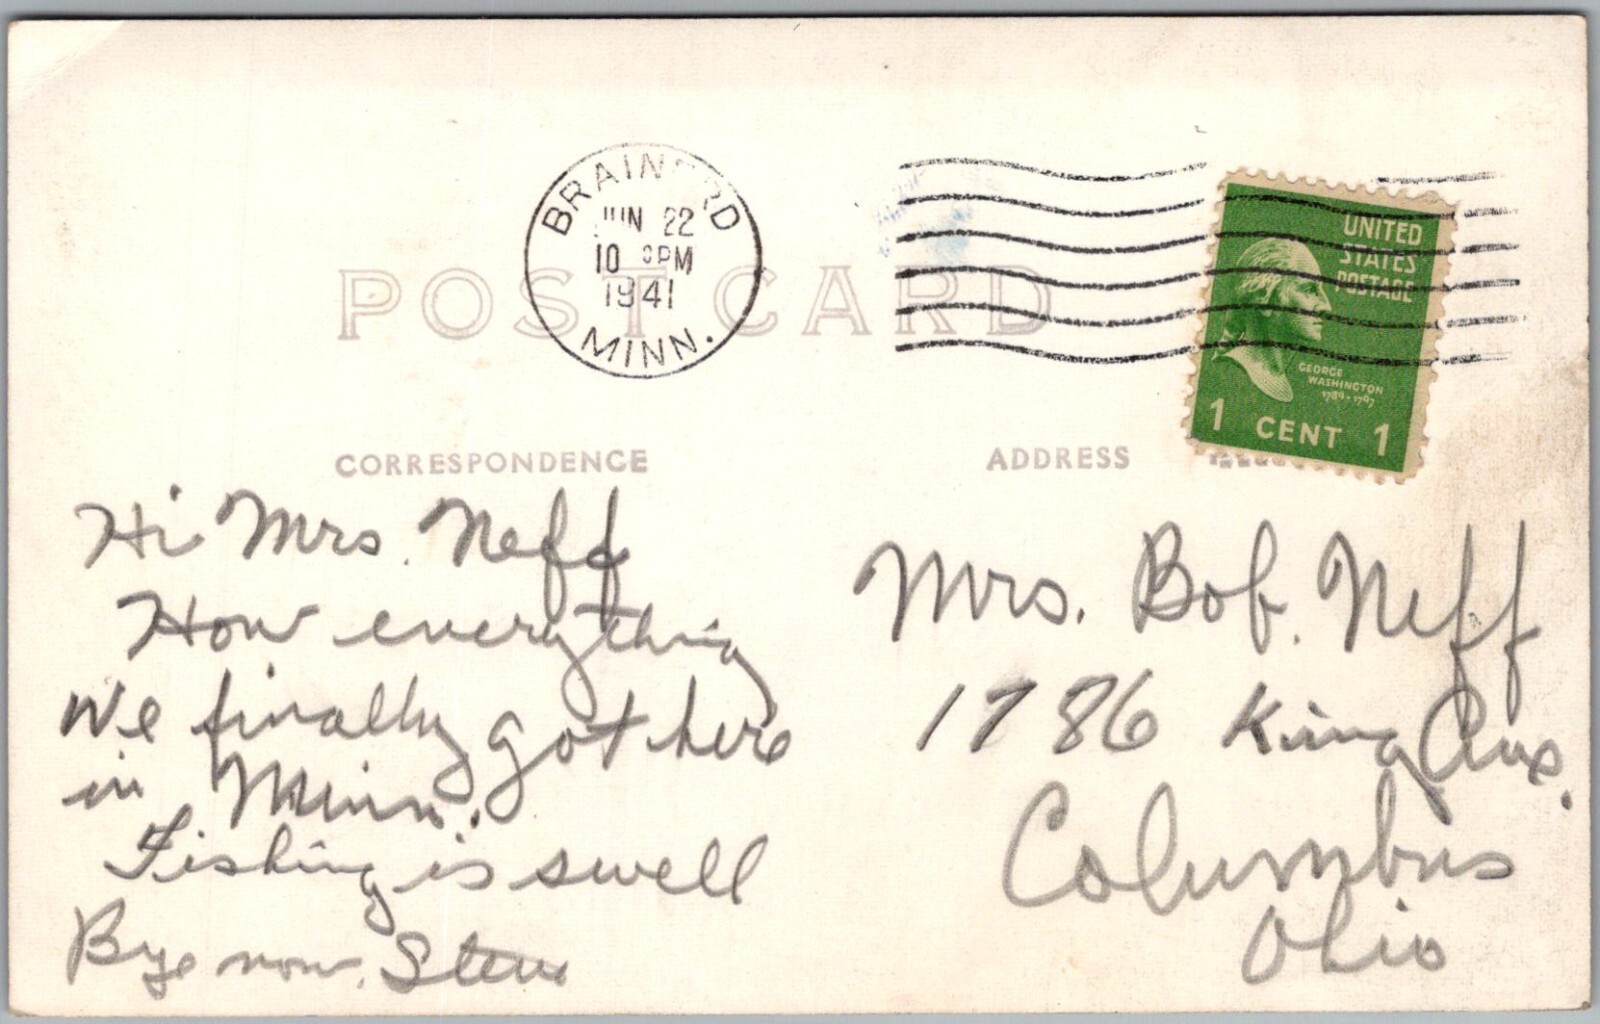 BRAINERD
JUN 22
10 PM
1941
MINN.
POST CARD
UNITED
STATES
POSTAGE
GEORGE
WASHINGTON
1789-1797
1 CENT 1
CORRESPONDENCE
ADDRESS
Hi Mrs. Neff
How everything
We finally got here
in Minn.
Fishing is swell
Bye now. Steve
Mrs. Bob. Neff
1786 King Ave.
Columbus
Ohio